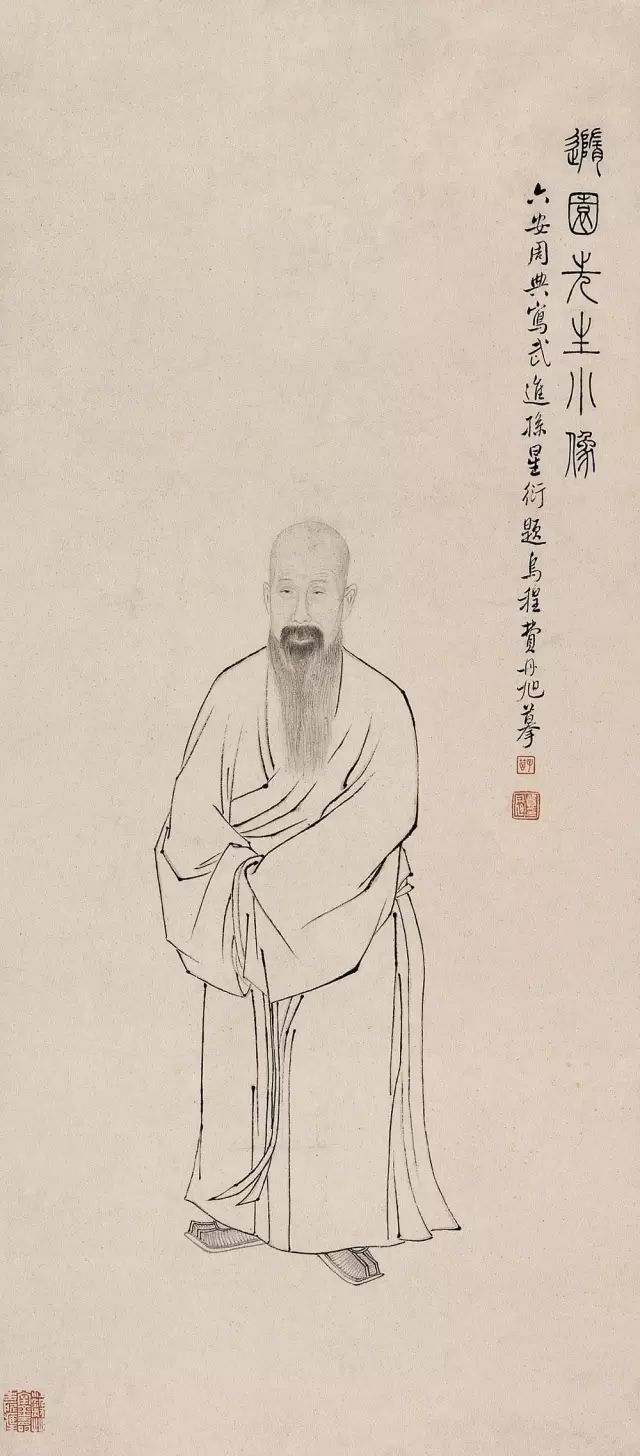 隨園先生小像
六安周典寫武進孫星衍題烏程費丹旭摹